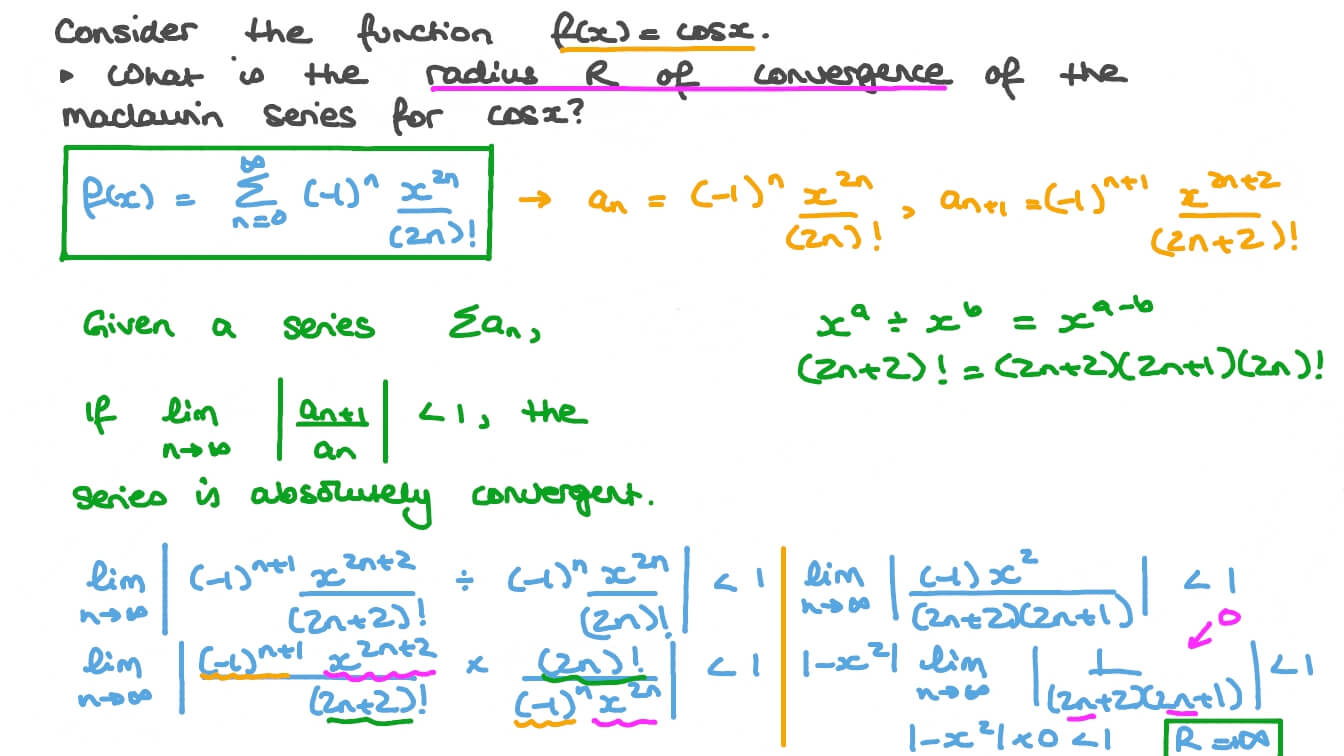 Consider the function f(x) = cosx.
▸ What is the radius R of convergence of the
maclaurin series for cosx?
f(x) = ∞∑n=0 (-1)ⁿ x²ⁿ/(2n)! → aₙ = (-1)ⁿ x²ⁿ/(2n)! , aₙ₊₁ = (-1)ⁿ⁺¹ x²ⁿ⁺²/(2n+2)!
Given a series Σaₙ,
xᵃ ÷ xᵇ = xᵃ⁻ᵇ
(2n+2)! = (2n+2)(2n+1)(2n)!
If lim n→∞ |aₙ₊₁/aₙ| < 1, the
series is absolutely convergent.
lim n→∞ |(-1)ⁿ⁺¹ x²ⁿ⁺²/(2n+2)! ÷ (-1)ⁿ x²ⁿ/(2n)!| < 1
lim n→∞ |(-1)ⁿ⁺¹ x²ⁿ⁺²/(2n+2)! × (2n)!/(-1)ⁿ x²ⁿ| < 1
lim n→∞ |(-1)x²/(2n+2)(2n+1)| < 1
0
|-x²| lim n→∞ |1/(2n+2)(2n+1)| < 1
|-x²| × 0 < 1
R = +∞